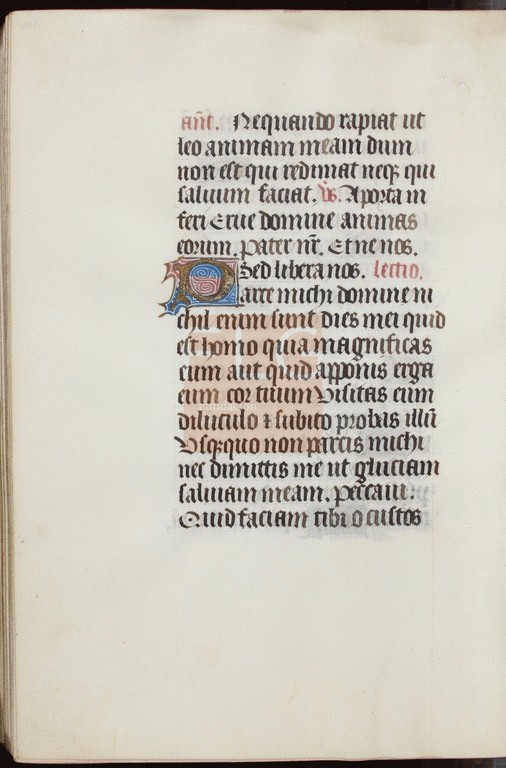 an̄t. Nequando rapiat ut
leo animam meam dum
non est qui redimat neq; qui
saluum faciat. v̄s. Aporta in
feri Erue domine animas
eorum. Pater nr̄. Et ne nos.
Sed libera nos. lectio.
Parce michi domine ni
chil enim sunt dies mei quid
est homo quia magnificas
eum aut quid apponis erga
eum cor tuum Visitas eum
diluculo ⁊ subito probas illū
Vsq;quo non parcis michi
nec dimittis me ut gluciam
saliuam meam. Peccaui:
Quid faciam tibi o custos